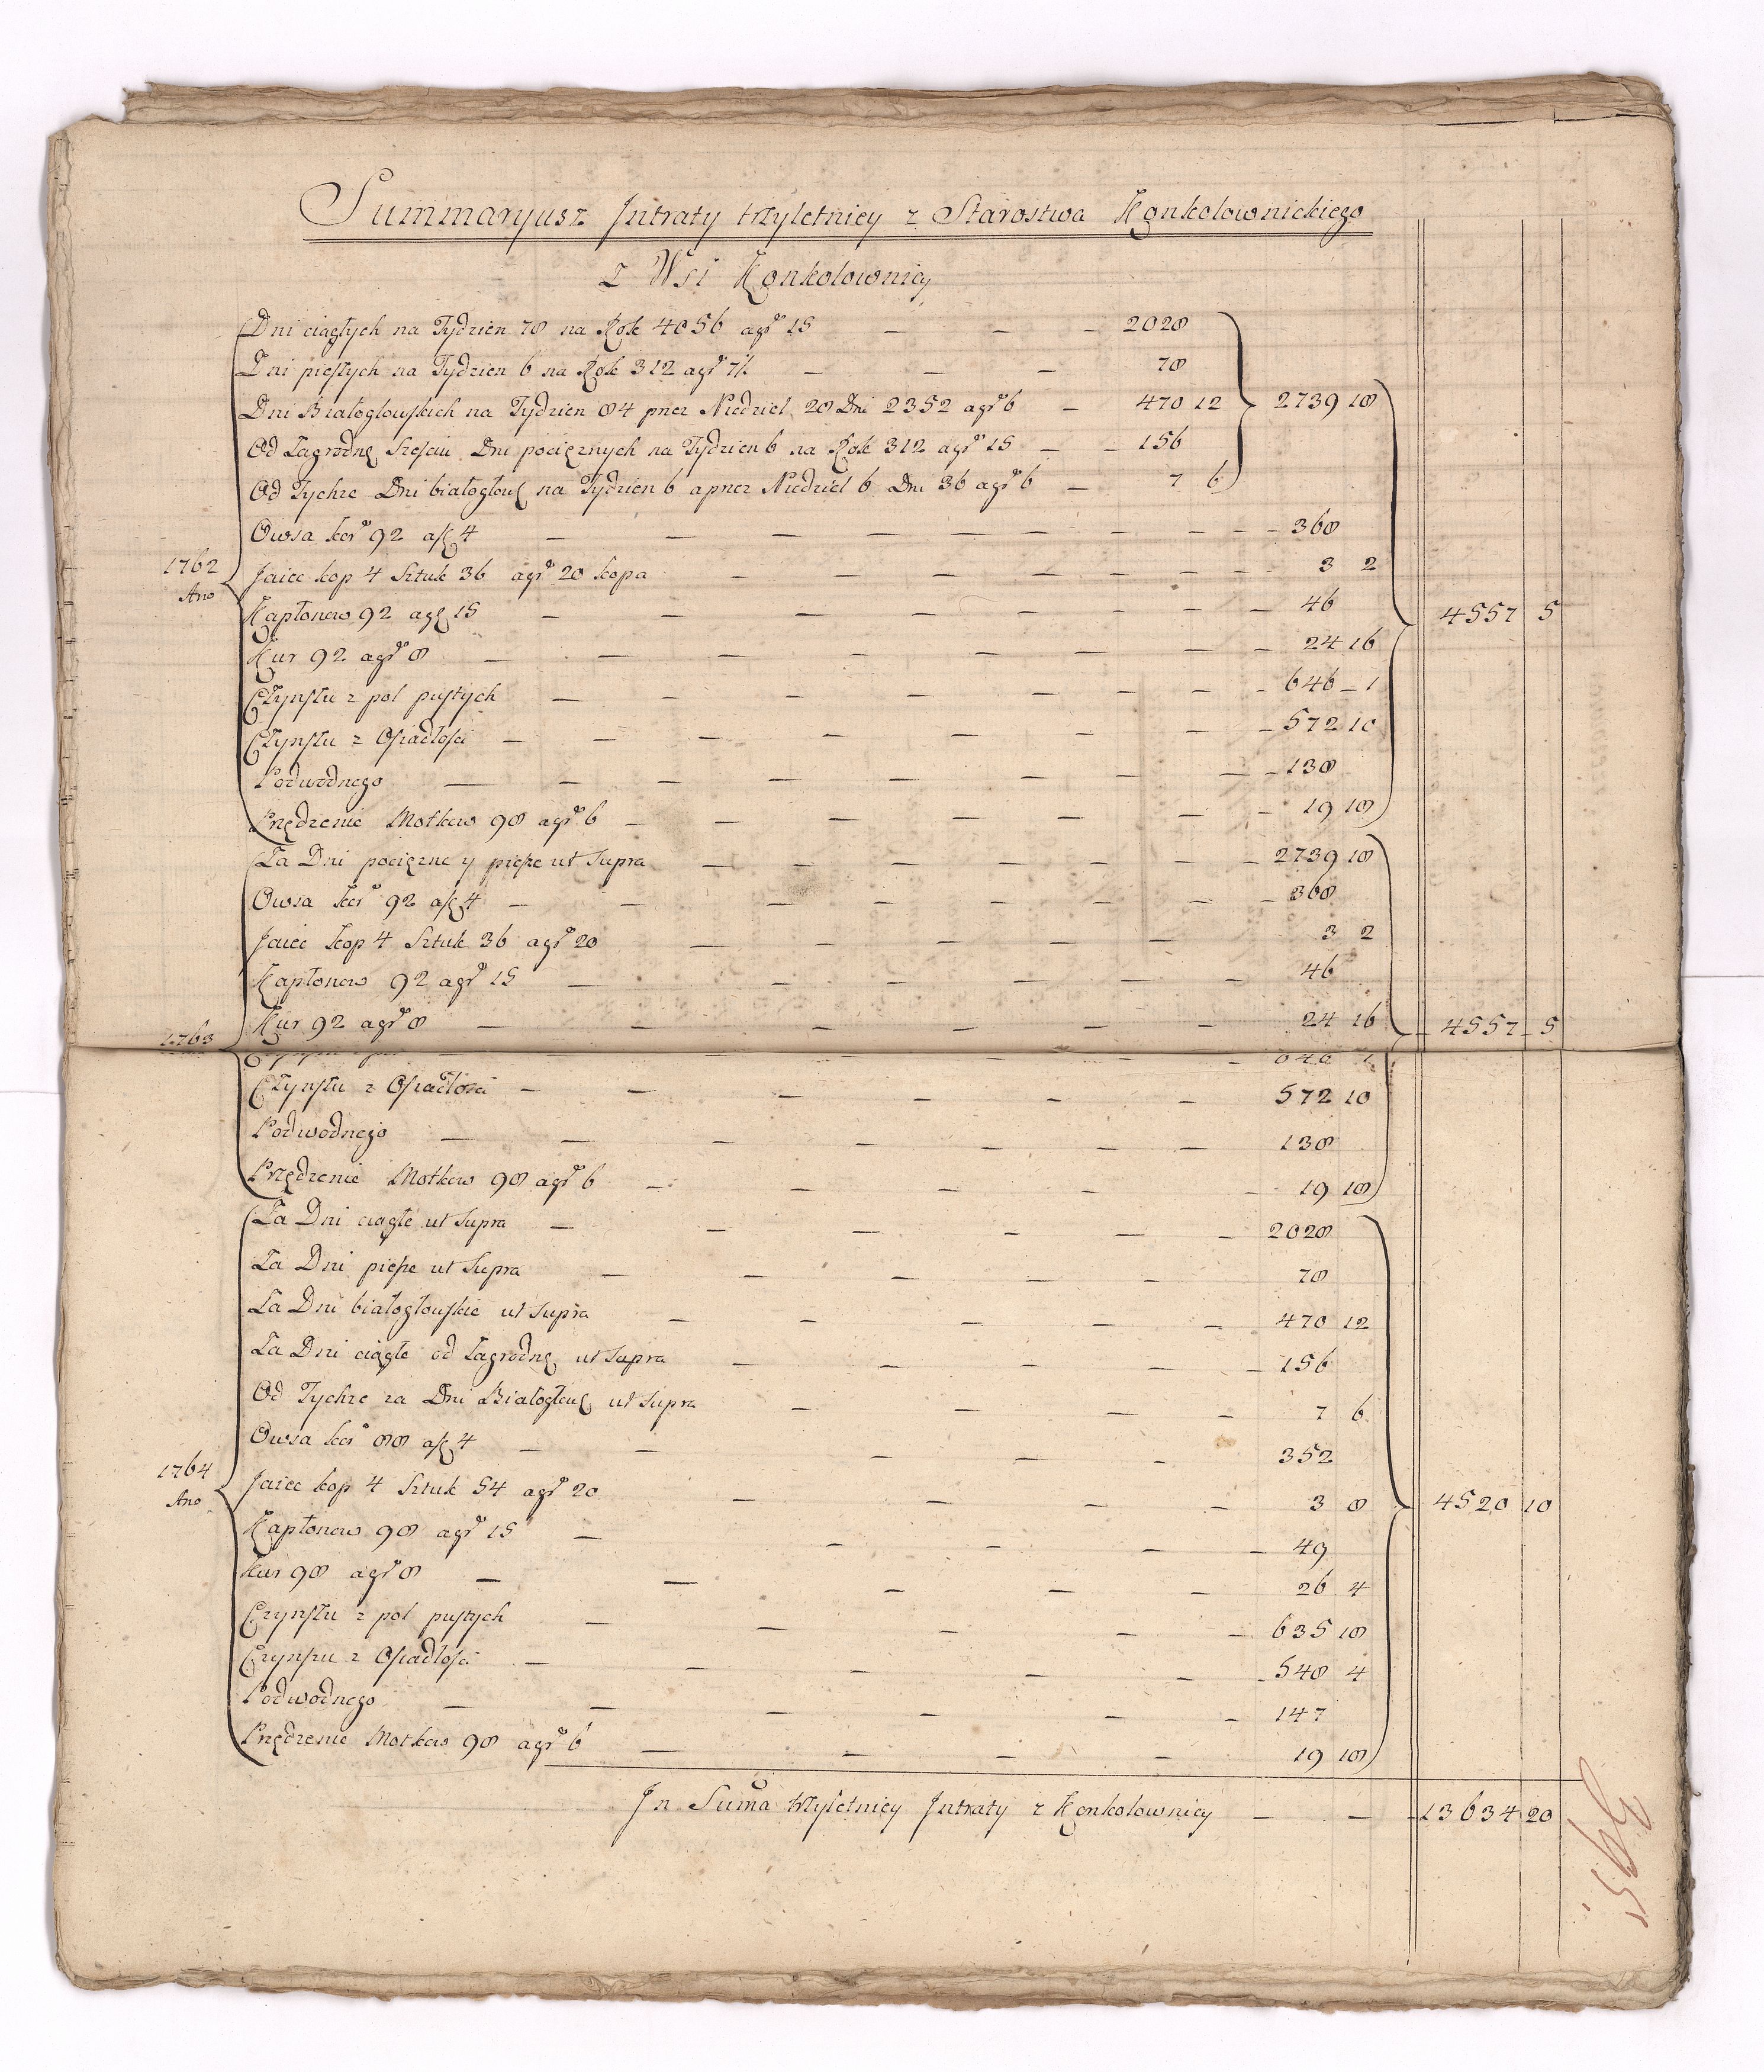 Summaryusz Jntraty trzyletniey z Starostwa Konkolownickiego
Z Wsi Konkolownicy
Dni ciągłych na Tydzien 78 na Rok 4056 a gr 15 — — — 2028
Dni pieszych na Tydzien 6 na Rok 312 a gr 7½ — — — 78
Dni Białogłowskich na Tydzien 84 przez Niedziel 28 Dni 2352 a gr 6 — 470 12 2739 18
Od Zagrodnę Szesciu Dni pociężnych na Tydzien 6 na Rok 312 a gr 15 — — 156
Od Tychże Dni białogłow na Tydzien 6 a przez Niedziel 6 Dni 36 a gr 6 — 7 6
Owsa kor 92 a 4 — — — — — — — 368
1762 Jaiec kop 4 Sztuk 36 a gr 20 kopa — — — — — — 3 2
Ano
Kapłonow 92 a gr 15 — — — — — — — 46 4557 5
Kur 92 a gr 8 — — — — — — — 24 16
Czynszu z pol pustych — — — — — — — 646 1
Czynszu z Osiadłosci — — — — — — — 572 10
Podwodnego — — — — — — — 138
Przędzenie Motkow 98 a gr 6 — — — — — — 19 18
Za Dni pociężne y piesze ut Supra — — — — — — 2739 18
Owsa kor 92 a 4 — — — — — — — 368
Jaiec kop 4 Sztuk 36 a gr 20 — — — — — 3 2
Kapłonow 92 a gr 15 — — — — — — 46
1763 Kur 92 a gr 8 — — — — — — 24 16 4557 5
Czynszu z Osiadłosci — — — — — — 572 10
Podwodnego — — — — — — 138
Przędzenie Motkow 98 a gr 6 — — — — — 19 18
Za Dni ciągłe ut Supra — — — — — — 2028
Za Dni piesze ut Supra — — — — — 78
Za Dni białogłowskie ut Supra — — — — — 470 12
Za Dni ciągłe od Zagrodnę ut Supra — — — — — 156
Od Tychże za Dni Białogłow ut Supra — — — — 7 6
Owsa kor 88 a 4 — — — — — 352
1764 Jaiec kop 4 Sztuk 54 a gr 20 — — — — 3 8 4520 10
Ano
Kapłonow 98 a gr 15 — — — — — 49
Kur 98 a gr 8 — — — — — 26 4
Czynszu z pol pustych — — — — — 635 18
Czynszu z Osiadłosci — — — — — — 548 4
Podwodnego — — — — — — 147
Przędzenie Motkow 98 a gr 6 — — — — 19 18
Jn Suma trzyletniey Jntraty z Konkolownicy — — 13634 20